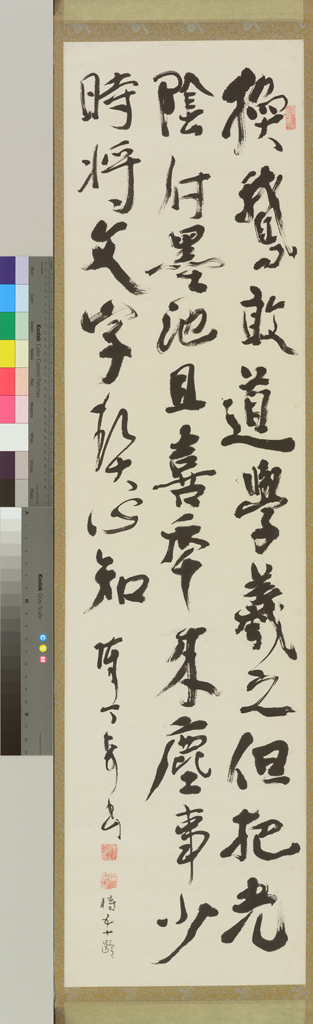 換鵝敢道學羲之但把光
陰付墨池且喜秊来塵事少
時將文字契心知
陳丁奇書
時十齡
Kodak Color Control Patches
Kodak Gray Scale
C Y M